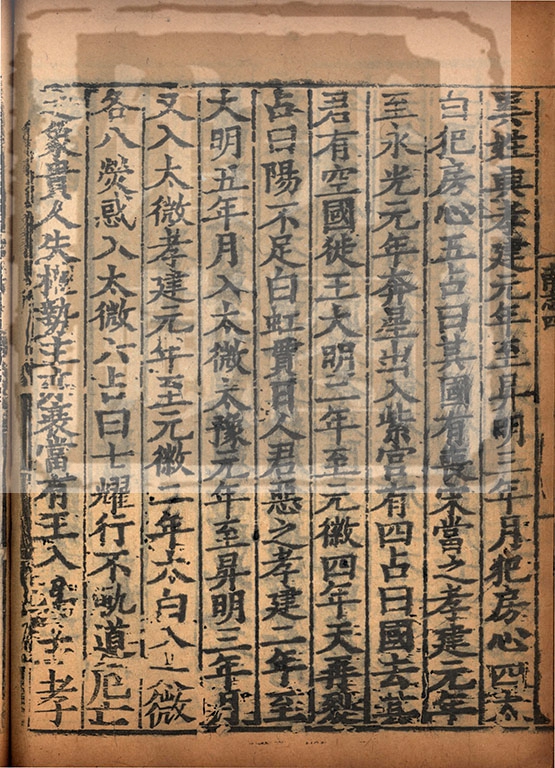 異姓興孝建元年至昇明三年月犯房心四太
白犯房心五占曰其國有喪宋當之孝建元年
至永光元年奔星出入紫宮有四占曰國去其
君有空國徙王大明二年至元徽四年天再裂
占曰陽不足白虹貫日人君惡之孝建二年至
大明五年月入太微太豫元年至昇明三年月
又入太微孝建元年至元徽二年太白入太微
各八熒惑入太微六占曰七耀行不軌道危亡
之象貴人失權勢主亦衰當有王入爲主孝